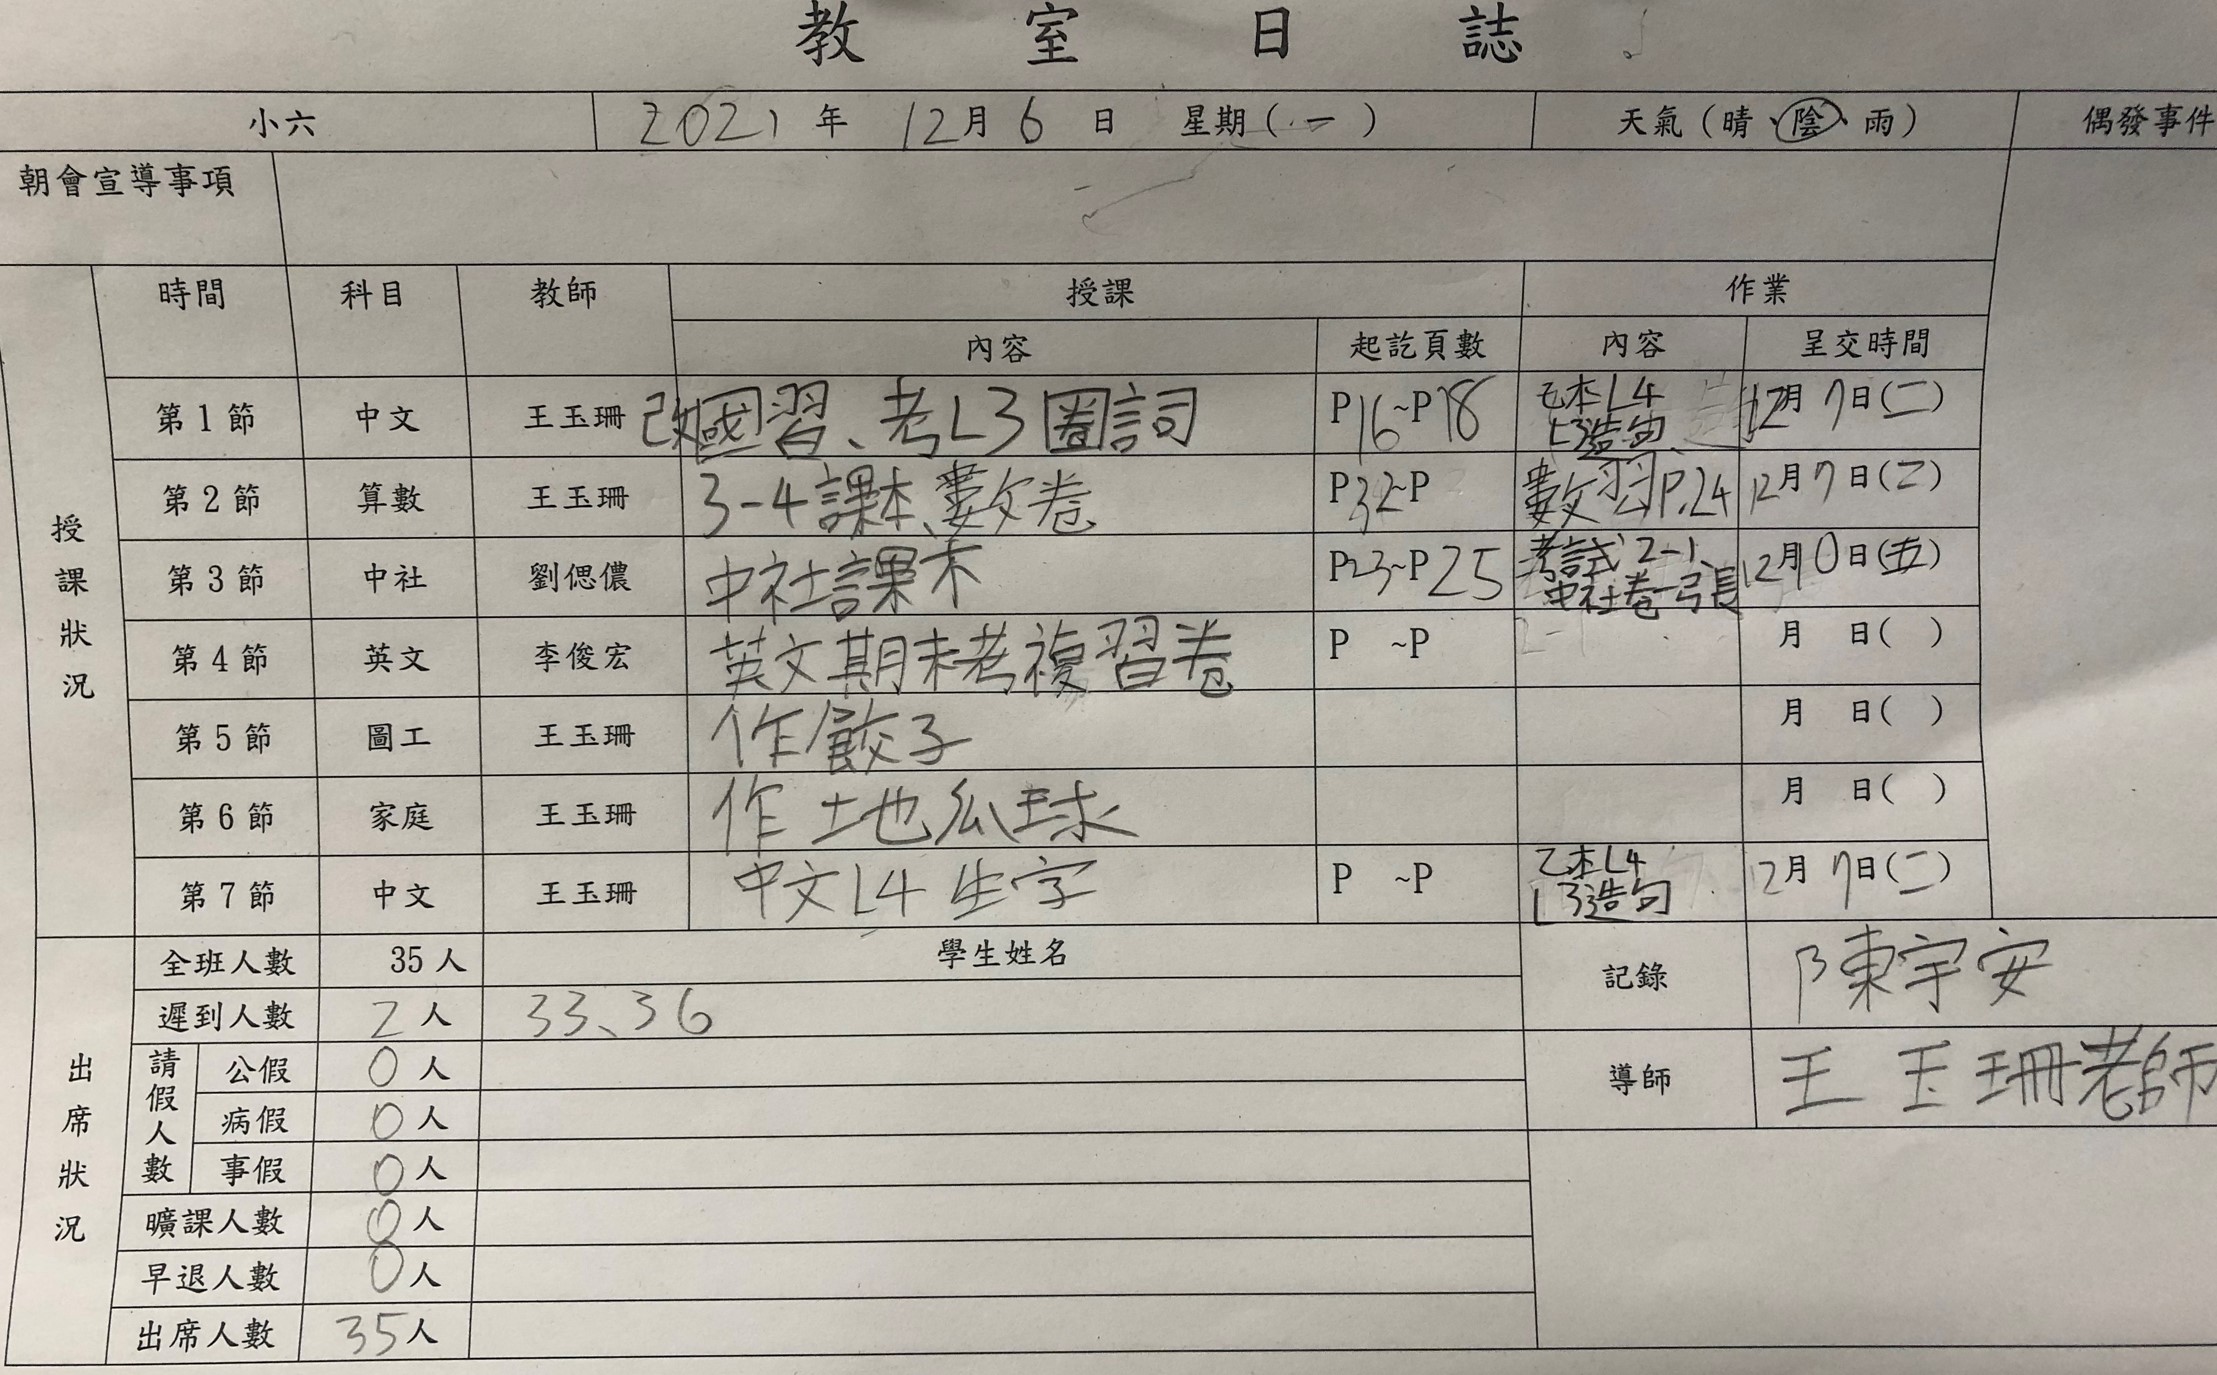 教室日誌
小六 2021年12月6日 星期(一) 天氣(晴、陰、雨) 偶發事件
朝會宣導事項
授課狀況
時間 科目 教師 授課 作業
內容 起訖頁數 內容 呈交時間
第1節 中文 王玉珊 改國習、考L3圈詞 P16~P18 乙本L4 12月7日(二)
L3造句
第2節 算數 王玉珊 3-4課本、數卷 P32~P 數習P.24 12月7日(二)
第3節 中社 劉偲儂 中社課本 P23~P25 考試2-1、 12月10日(五)
中社卷一弓長
第4節 英文 李俊宏 英文期末考複習卷 P ~P 月 日( )
第5節 圖工 王玉珊 作餃子 月 日( )
第6節 家庭 王玉珊 作地瓜球 月 日( )
第7節 中文 王玉珊 中文L4生字 P ~P 乙本L4 12月7日(二)
L3造句
出席狀況
全班人數 35人 學生姓名 記錄 陳宇安
遲到人數 2人 33、36
請假人數
公假 0人 導師 王玉珊老師
病假 0人
事假 0人
曠課人數 0人
早退人數 0人
出席人數 35人